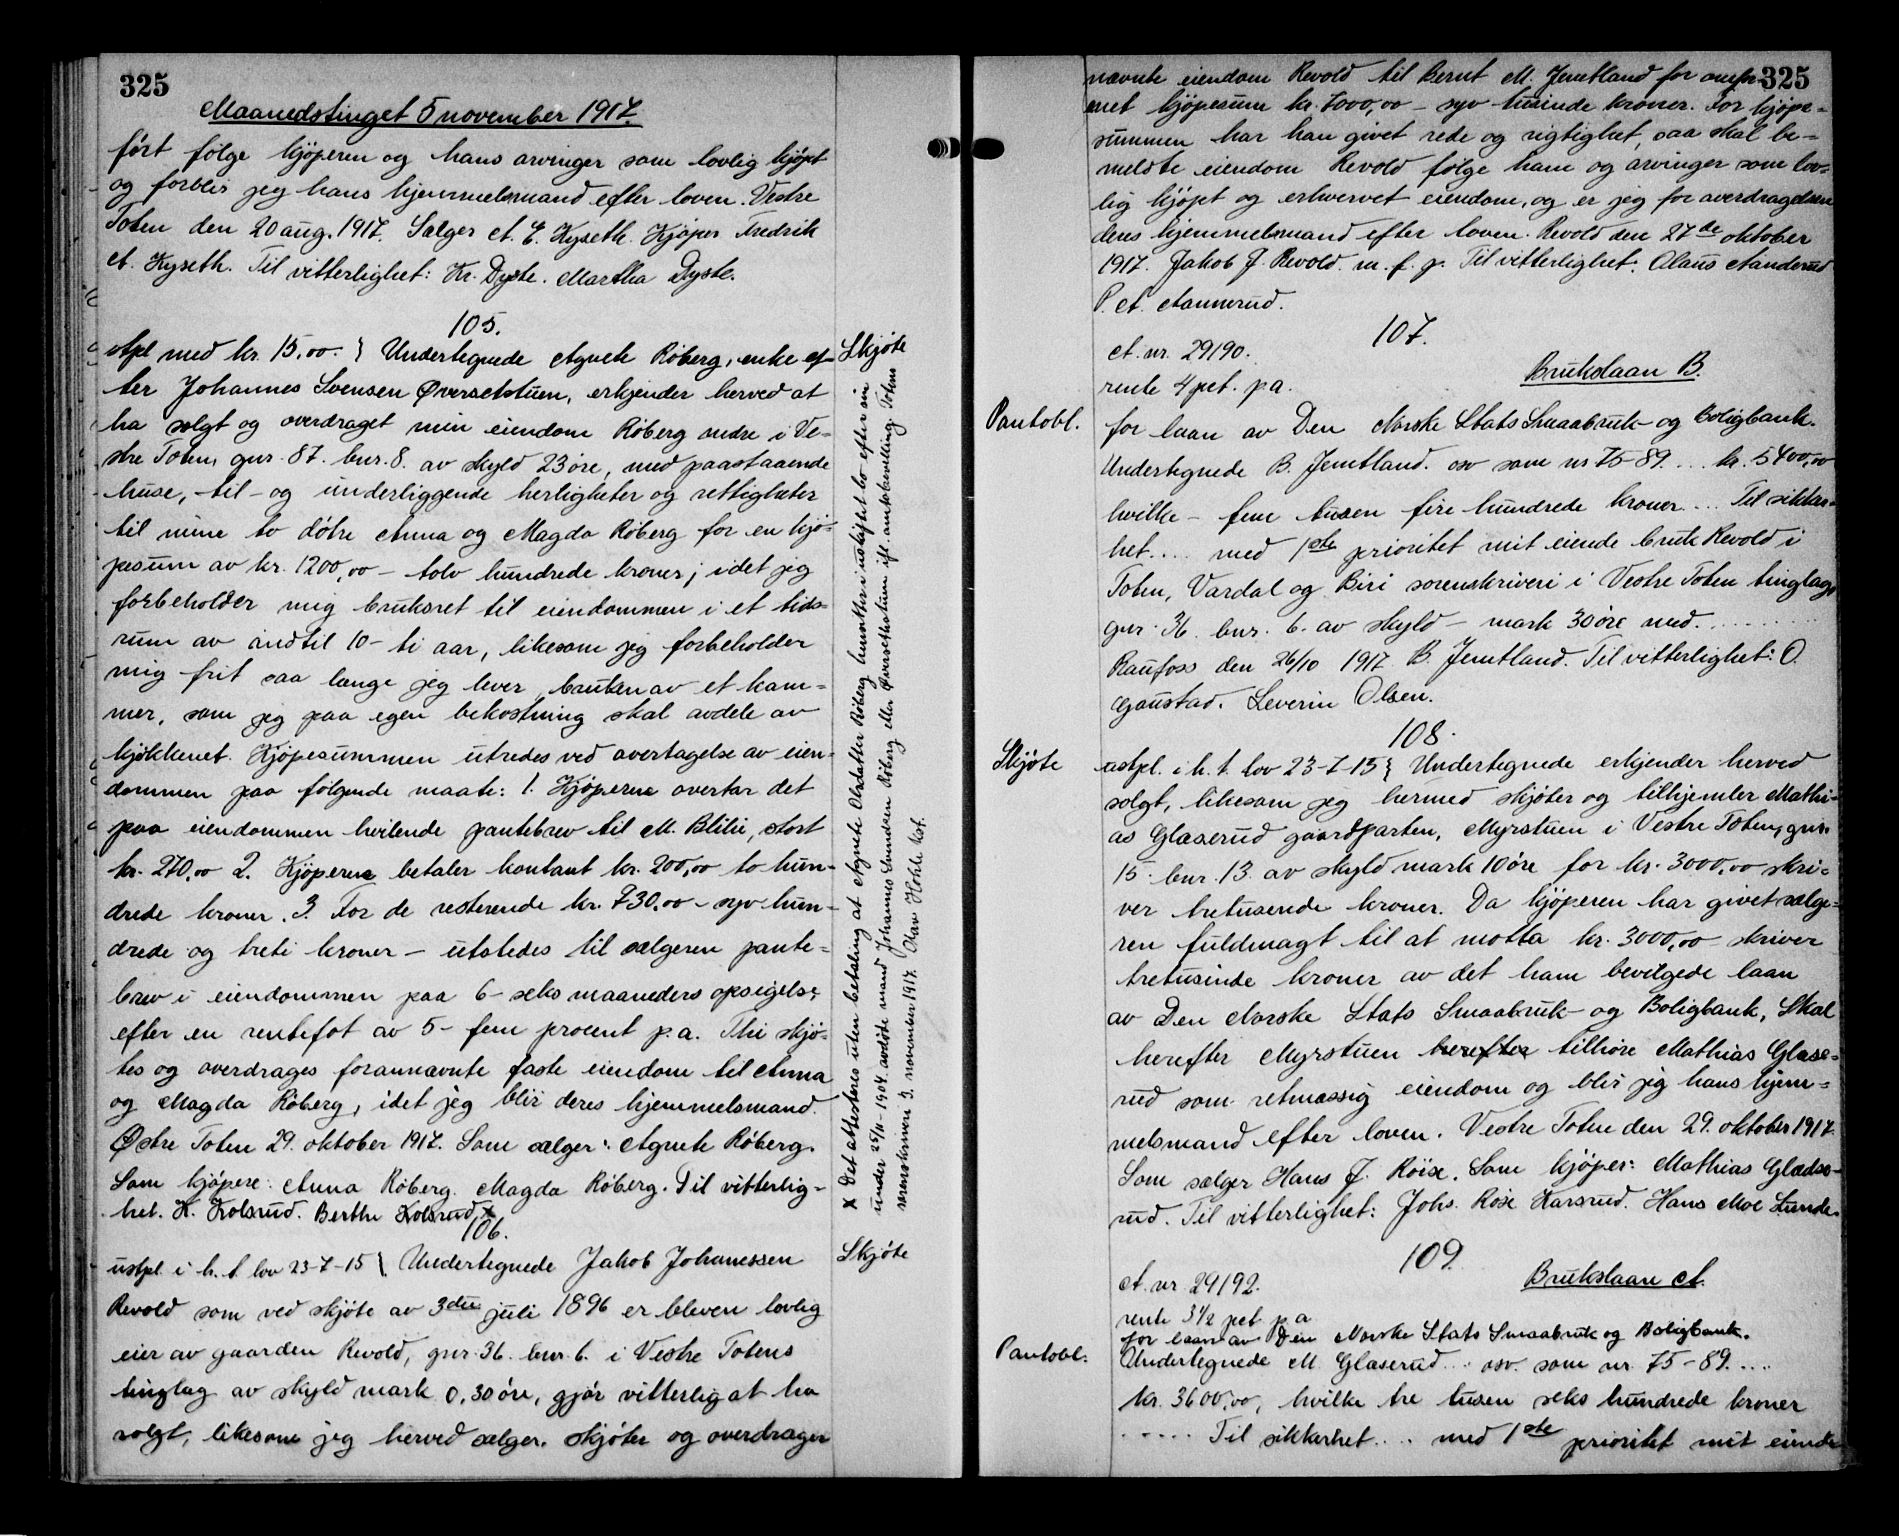 325
Maanedstinget 5 november 1917.
ført følge kjøperen og hans arvinger som lovlig kjøpt
og forblir jeg hans hjemmelsmand efter loven. Vestre
Toten den 20 aug. 1917. Sælger A. E. Kyseth. Kjøper Fredrik
A. Kyseth. Til vitterlighet: Kr. Dyste. Martha Dyste.
105.
stpl med kr. 15,00. } Undertegnede Agnete Røberg, enke ef-
Skjøte
ter Johannes Svensen Øversetstuen, erkjender herved at
ha solgt og overdraget min eiendom Røberg nedre i Ve-
stre Toten, gnr. 87. bnr. 8. av skyld 23 øre, med paastaaende
huse, til- og underliggende herligheter og rettigheter
til mine to døtre Anna og Magda Røberg for en kjø-
pesum av kr. 1200,00 - tolv hundrede kroner; idet jeg
forbeholder mig bruksret til eiendommen i et tids-
rum av indtil 10 - ti aar, likesom jeg forbeholder
mig frit saa længe jeg lever bruken av et kam-
mer, som jeg paa egen bekostning skal avdele av
kjøkkenet. Kjøpesummen utredes ved overtagelse av eien-
dommen paa følgende maate: 1. Kjøperne overtar det
paa eiendommen hvilende pantebrev til M. Blilie, stort
kr. 270,00 2. Kjøperne betaler kontant kr. 200,00 to hun-
drede kroner. 3. For de resterende kr. 730,00 - syv hun-
drede og treti kroner - utstedes til sælgeren pante-
brev i eiendommen paa 6 - seks maaneders opsigelse
efter en rentefot av 5 - fem procent p.a. Thi skjø-
tes og overdrages forannævnte faste eiendom til Anna
og Magda Røberg, idet jeg blir deres hjemmelsmand.
Østre Toten 29. oktober 1917. Som sælger: Agnete Røberg.
Som kjøpere: Anna Røberg. Magda Røberg. Til vitterlig-
het. K. Kolsrud. Berthe Kolsrud. x
x Det attesteres uten betaling at Agnete Olsdatter Røberg hensitter i uskiftet bo efter sin
under 25/11-1904 avdøde mand Johannes Svendsen Røberg eller Øversetstuen ifl. amtsbevilling. Totens
sorenskriveri 3. november 1917. Olav Hohle kst.
106.
ustpl. i h. t. lov 23-7-15 } Undertegnede Jakob Johanessen
Skjøte
Revold som ved skjøte av 3die juli 1896 er bleven lovlig
eier av gaarden Revold, gnr. 36. bnr. 6. i Vestre Totens
tinglag av skyld mark 0,30 øre, gjør vitterlig at ha
solgt, likesom jeg herved sælger, skjøter og overdrager
325
nævnte eiendom Revold til Bernt M. Jemtland for omfor-
enet kjøpesum kr. 7000,00 - syv tusinde kroner. For kjøpe-
summen har han givet rede og rigtighet, saa skal be-
meldte eiendom Revold følge ham og arvinger som lov-
lig kjøpt og erhvervet eiendom, og er jeg for overdragelsen
deres hjemmelsmand efter loven. Revold den 27de oktober
1917. Jakob J. Revold. m. f. p. Til vitterlighet: Olaus Aanderud
P. A. Aannerud.
107.
A. nr. 29190.
rente 4 pct. p a.
Brukslaan B.
Pantobl.
for laan av Den Norske Stats Smaabruk- og Boligbank.
Undertegnede B. Jemtland. osv som nr 75-89 ... kr. 5400,00
hvilke - fem tusen fire hundrede kroner ... Til sikker-
het .... med 1ste prioritet mit eiende bruk Revold i
Toten, Vardal og Biri sorenskriveri i Vestre Toten tinglag,
gnr. 36. bnr. 6. av skyld - mark 30 øre med. ........
Raufoss den 26/10 1917 B. Jemtland. Til vitterlighet: O.
Gaustad. Severin Olsen.
108.
Skjøte
ustpl. i h. t. lov 23-7-15 } Undertegnede erkjender herved
solgt, likesom jeg hermed skjøter og tilhjemler Mathi-
as Glæserud gaardparten, Myrstuen i Vestre Toten, gnr.
15. bnr. 13. av skyld mark 10 øre for kr. 3000,00 skri-
ver tretusende kroner. Da kjøperen har givet sælge-
ren fuldmagt til at motta kr. 3000,00 skriver
tretusinde kroner av det ham bevilgede laan
av Den Norske Stats Smaabruk- og Boligbank, skal
herefter Myrstuen herefter tilhøre Mathias Glæse-
rud som retmæssig eiendom og blir jeg hans hjem-
melsmand efter loven. Vestre Toten den 29. oktober 1917.
Som sælger Hans J. Røise. Som kjøper: Mathias Glædse-
rud. Til vitterlighet: Johs. Røise Karsrud. Hans Moe Lunde.
109.
A. nr 29192.
Brukslaan A.
rente 3 1/2 pct. p a
for laan av Den Norske Stats Smaabruk og Boligbank.
Pantobl.
Undertegnede M. Glæserud ... osv. som nr. 75-89 ....
kr. 3600,00, hvilke tre tusen seks hundrede kroner
..... Til sikkerhet .... med 1ste prioritet mit eiende